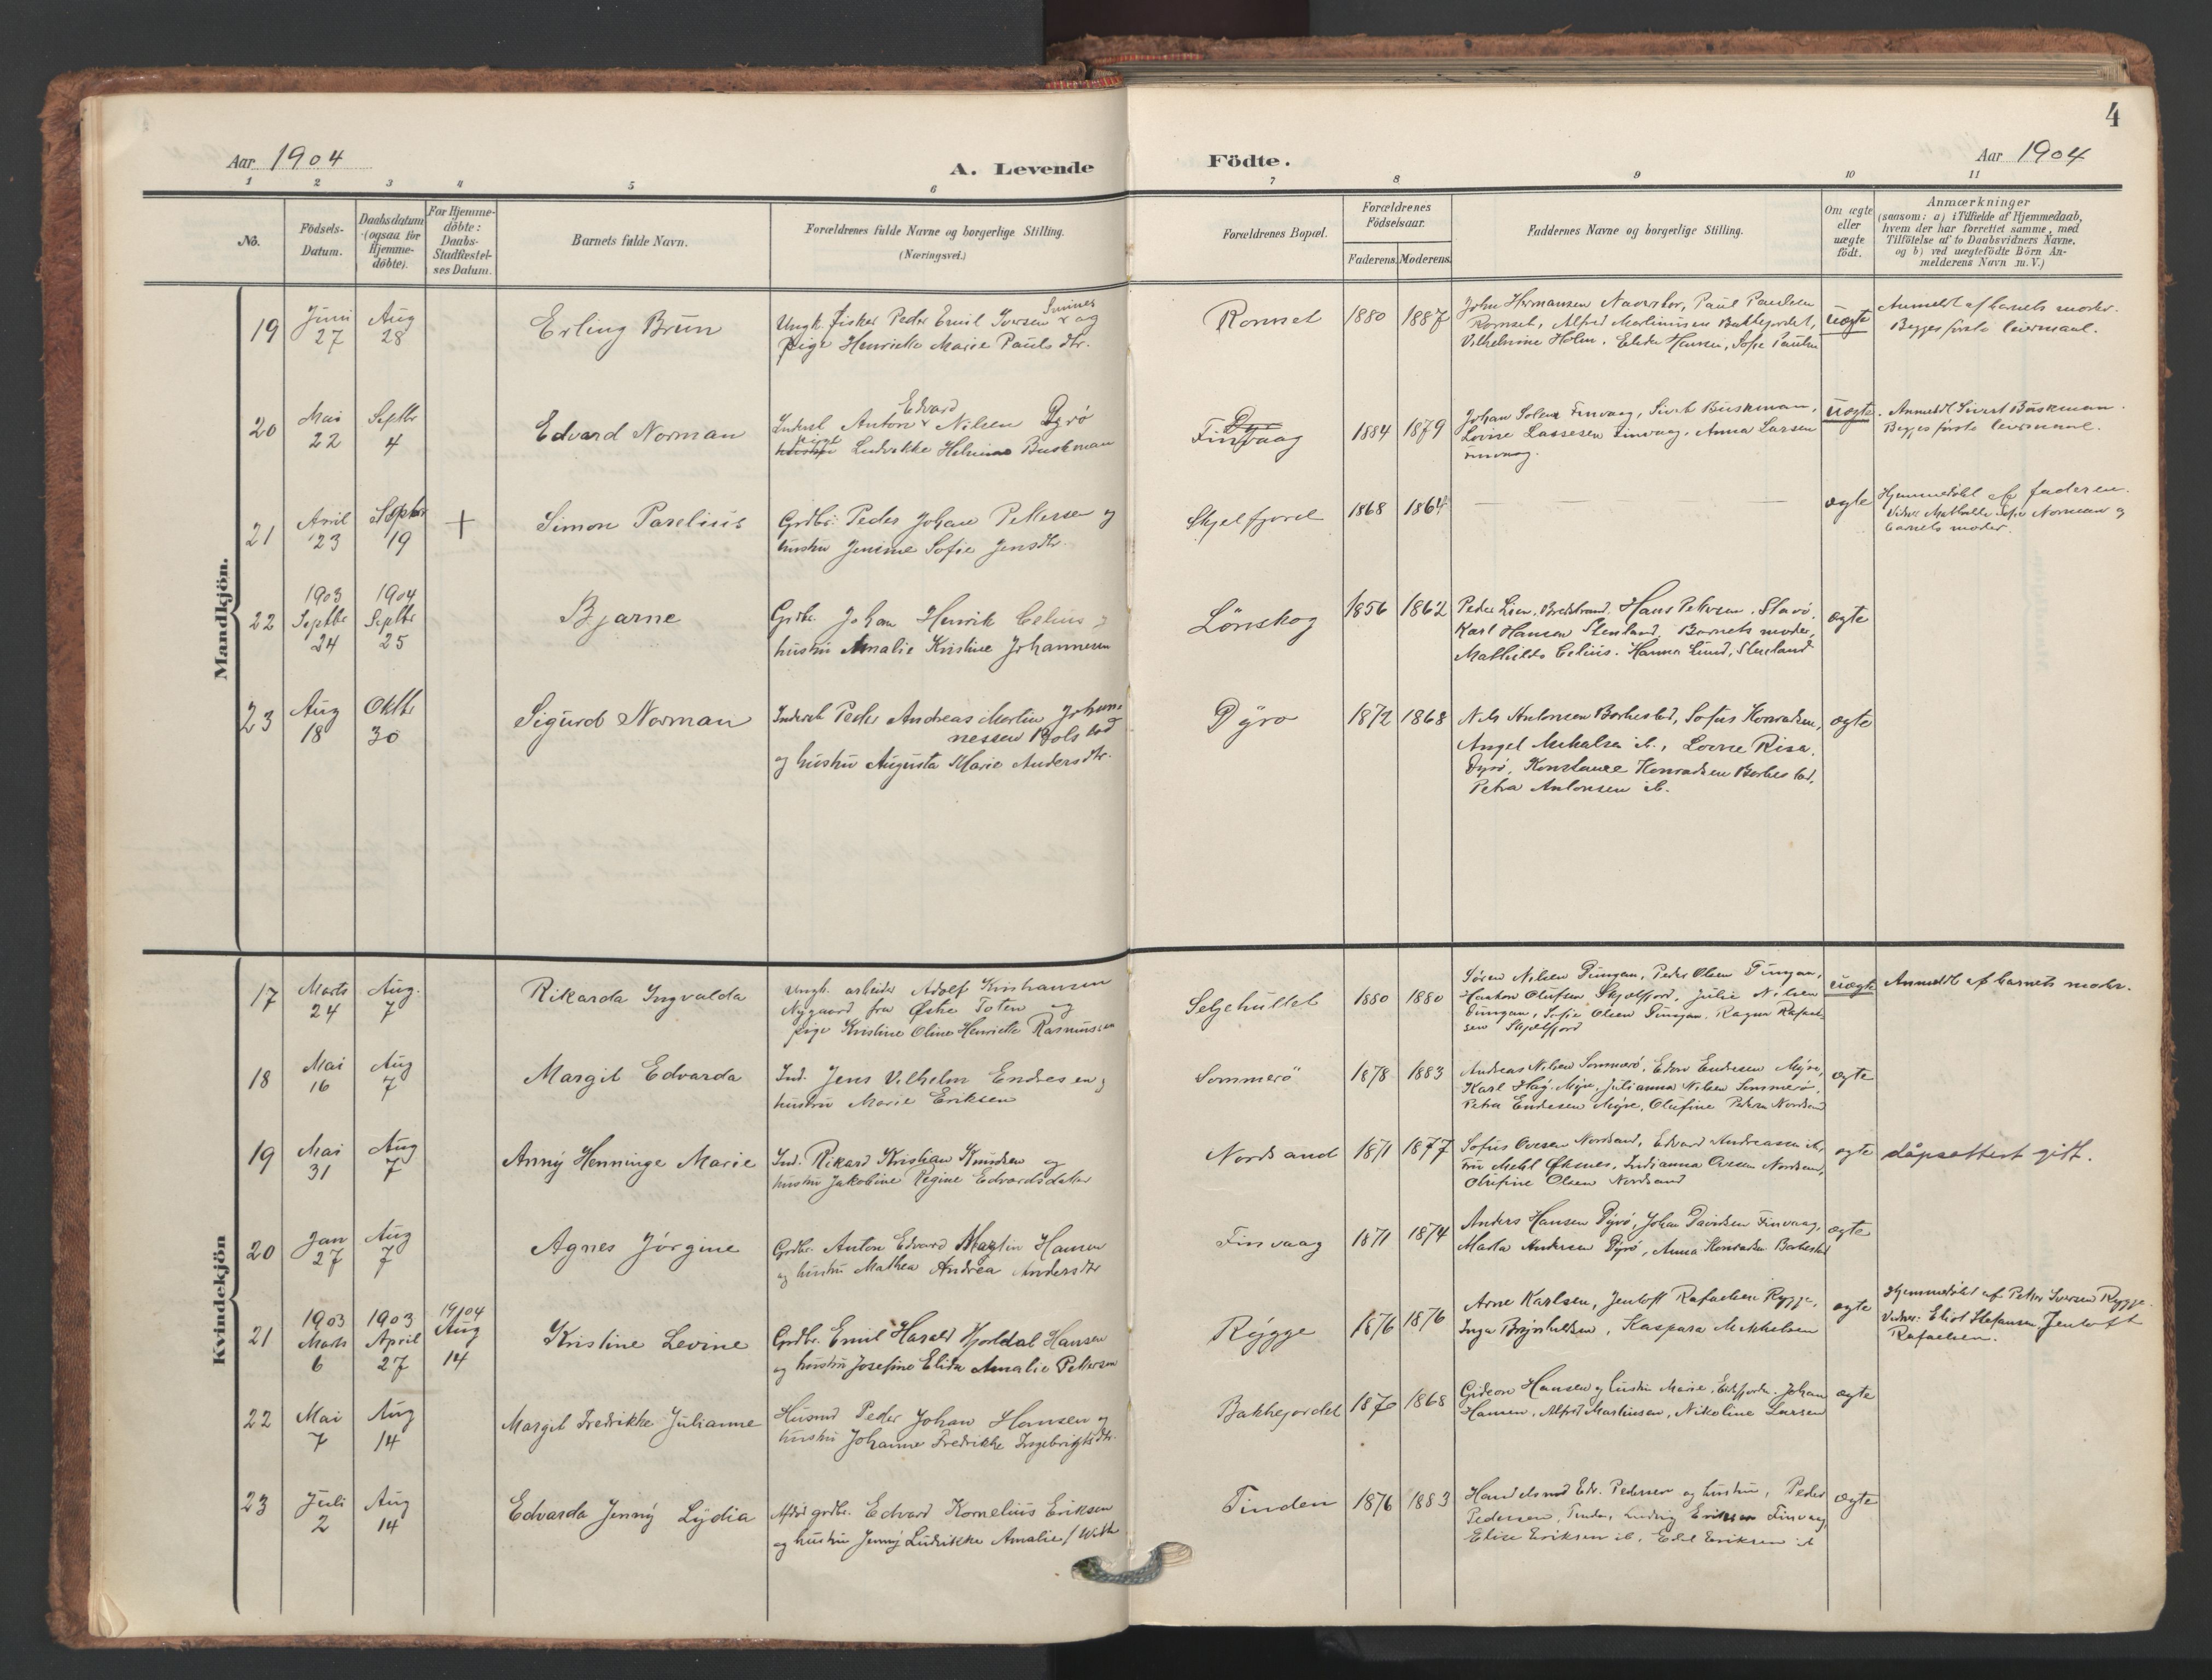 4
Aar 1904
A. Levende
Födte.
Aar 1904
1 2 3 4 5 6 7 8 9 10 11
No.
Födsels-
Datum.
Daabsdatum
(ogsaa for
Hjemme-
döbte).
For Hjemme-
döbte:
Daabs-
Stadfæstel-
ses Datum.
Barnets fulde Navn.
Forældrenes fulde Navne og borgerlige Stilling.
(Næringsvei.)
Forældrenes Bopæl.
Forældrenes
Födselsaar.
Faderens. Moderens.
Faddernes Navne og borgerlige Stilling.
Om ægte
eller
uægte
födt.
Anmærkninger
(saasom: a) i Tilfælde af Hjemmedaab,
hvem der har forrettet samme, med
Tilföielse af to Daabsvidners Navne,
og b) ved uægtefödte Börn An-
melderens Navn m. V.)
Mandkjön.
19
Juni
27
Aug
28
Erling Brun
Ungk. fisker Peder Emil Iversen og
pige Henrikke Marie Pauls dtr.
Romset
1880 1887
John Hermansen Naverstor, Paul Paulsen
Romset, Alfred Martinusen Bakkejordet,
Vilhelmine Holm, Elida Hansen, Sofie Paulsen
Uægte
Anmeldt af barnets moder.
Begges første leiermaal.
20
Mai
22
Septbr
4
Edvard Norman
Edvard
Inderst Anton Nilsen Dyrö
pige
hustru Ludvikke Helmine Buskman
Finvaag
1884 1879
Johan Solem Finvaag, Sivert Buskman,
Lovise Lassesen Finvaag, Anna Larsen
Finvaag.
Uægte.
Anmeldt Sivert Buskman.
Begges første leiermaal.
21
April
23
Septbr
19
+
Simon Parelius
Grdbr. Peder Johan Pettersen og
hustru Jensine Sofie Jensdtr.
Skjelfjord
1868 1864
ægte
Hjemmedöbt af faderen.
Vidner Mathilde Sofie Norman og
barnets moder.
22
1903
Septbr
24
1904
Septbr
25
Bjarne
Grdbr. Johan Henrik Celius og
hustru Amalie Kristine Johannesen
Lönskog
1856 1862
Peder Lien, Bredstrand, Hans Petersen, Slavö,
Karl Hansen Stenland, Barnets moder,
Mathilde Celius. Hanna Lund, Stenland
ægte
23
Aug
18
Oktbr
30
Sigurd Norman
Inderst Peder Andreas Martin Johan
nessen Bolstad
og hustru Augusta Marie Andersdtr.
Dyrö
1872 1868
Nils Antonsen Barkestad, Sofus Konradsen,
Angel Mikalsen ib., Lovise Risa,
Dyrö, Konstance Konradsen Barkestad,
Petra Antonsen ib.
ægte
Kvindekjön
17
Marts
24
Aug.
7
Rikarda Ingvalda
Ungk. arbeider Adolf Kristiansen
Nygaard fra Østre Toten og
pige Kristine Oline Henriette Rasmussen
Seljehullet
1880 1880
Sören Nilsen Tungan, Peder Olsen Tungan,
Haakon Olufsen Skjelfjord, Julie Nilsen
Tungan, Sofie Olsen Tungan. Ragna Rafael-
sen Skjelfjord
Uægte
Anmeldt af barnets moder.
18
Mai
16
Aug
7
Margit Edvarda
Ind. Jens Vilhelm Endresen og
hustru Marie Eriksen
Sommerö
1878 1883
Andreas Nilsen Sommerö, Edvin Endresen Myre,
Karl Hag. Myre, Julianna Nilsen Sommerö,
Petra Endresen Myre, Olufine Pedersen Nordsand
ægte
19
Mai
31
Aug
7
Anny Henninge Marie
Ind. Rikard Kristian Knudsen og
hustru Jakobine Regine Edvardsdatter
Nordsand
1871 1877
Sofus Ovesen Nordsand, Edvard Andreassen ib,
Fru Mehl Øksnes, Indianna Ovesen Nordsand,
Olufine Olsen Nordsand
ægte
dåpsattest gitt.
20
Jan
27
Aug
7
Agnes Jørgine
Grdbr. Anton Edvard Martin Hansen
og hustru Mathea Andrea Andersdtr
Finvaag
1871 1874
Anders Hansen Dyrö, Johan Davidsen Finvaag,
Marta Andersen Dyrö, Anna Konradsen Barkestad
ægte
21
1903
Marts
6
1903
April
27
1904
Aug
14
Kristine Levine
Grdbr. Emil Harald Hjorldal Hansen
og hustru Josefine Elida Amalie Pettersen
Rygge
1876 1876
Arne Karlsen, Jentoft Rafaelsen Rygge,
Inga Brynhildsen, Kaspara Mikkelsen
ægte
Hjemmedöbt af Petter Iversen Rygge.
Vidner: Eliot Stefansen, Jentoft
Rafaelsen.
22
Mai
7
Aug
14
Margit Fredrikke Julianne
Husmd Peder Johan Hansen og
hustru Johanne Fredrikke Ingebrigtsdtr.
Bakkejordet
1870 1868
Gideon Hansen og hustru Marie, Eidsfjorden. Johan
Hansen, Alfred Martinusen, Nikoline Larsen
ægte
23
Juli
2
Aug
14
Edvarda Jenny Lydia
grdbr. Edvard Kornelius Eriksen
og hustru Jenny Ludvikke Amalie f. With
Tinden
1876 1883
Handelsmd Edv. Pedersen og hustru, Peder
Pedersen, Tinden, Ludvig Eriksen Finvaag,
Elise Eriksen ib, Edel Eriksen ib
ægte